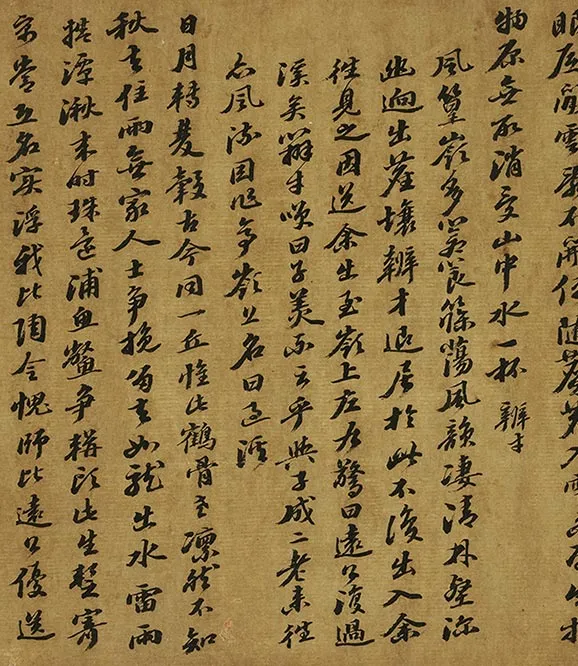 眼底閒雲亂不開偶隨麋鹿入雲來平生於
物原無取消受山中水一杯 辨才
風篁嶺多蒼筤篠蕩風韻淒清林壑深
幽迥出塵壤辨才退居於此不復出入余
往見之因送余出至嶺上左右驚曰遠公復過
溪矣辨才笑曰子美不云乎與子成二老來往
亦風流因作亭嶺上名曰過溪
日月轉雙轂古今同一丘惟此鶴骨老凜然不知
秋去住兩無家人士爭挽留去如龍出水雷雨
捲潭湫來時珠還浦魚鱉爭駢頭此生暫寄
寓常恐名實浮我比陶令愧師比遠公優送